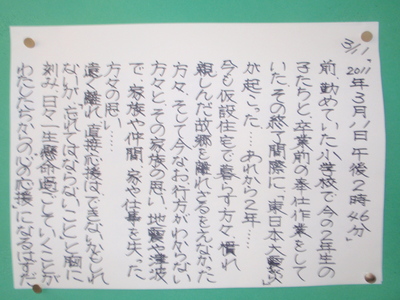 3/11
"2011年3月11日午後2時46分"
前勤めていた小学校で今の2年生の
子たちと、卒業前の奉仕作業をして
いた、その終了間際に、「東日本大震災」
が起こった。……あれから2年……
今も仮設住宅で暮らす方々、慣れ
親しんだ故郷を離れざるをえなかった
方々、そして今なお行方がわからない
方々とその家族の思い、地震や津波
で、家族や仲間、家や仕事を失った
方々の思い……
遠く離れ、直接応援はできないかもしれ
ないが、"忘れてはならない"ことと胸に
刻み、日々一生懸命過ごしていくことが
わたしたちからの"心の応援"になるはずだ